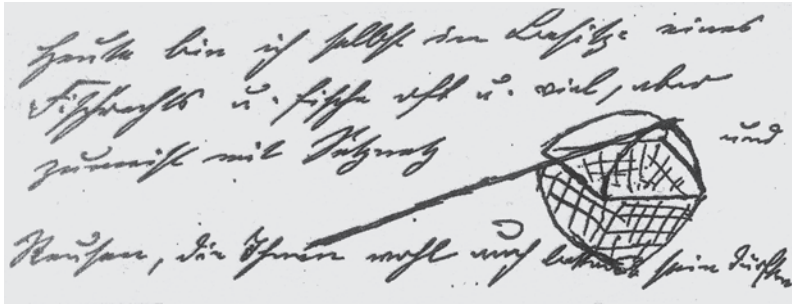 Heute bin ich selbst im Besitze eines
Fischrechts u. fische oft u. viel, aber
zumeist mit Setznetz und
Reusen, die Ihnen wohl auch bekannt sein dürften